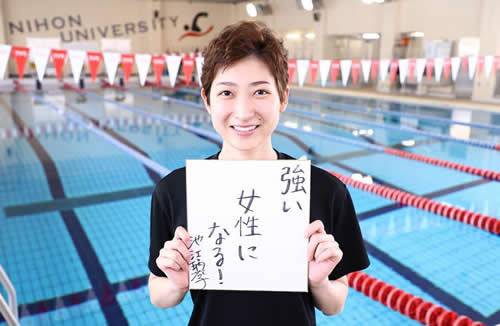 NIHON
UNIVERSITY
強い
女性に
なる!
池江璃花子